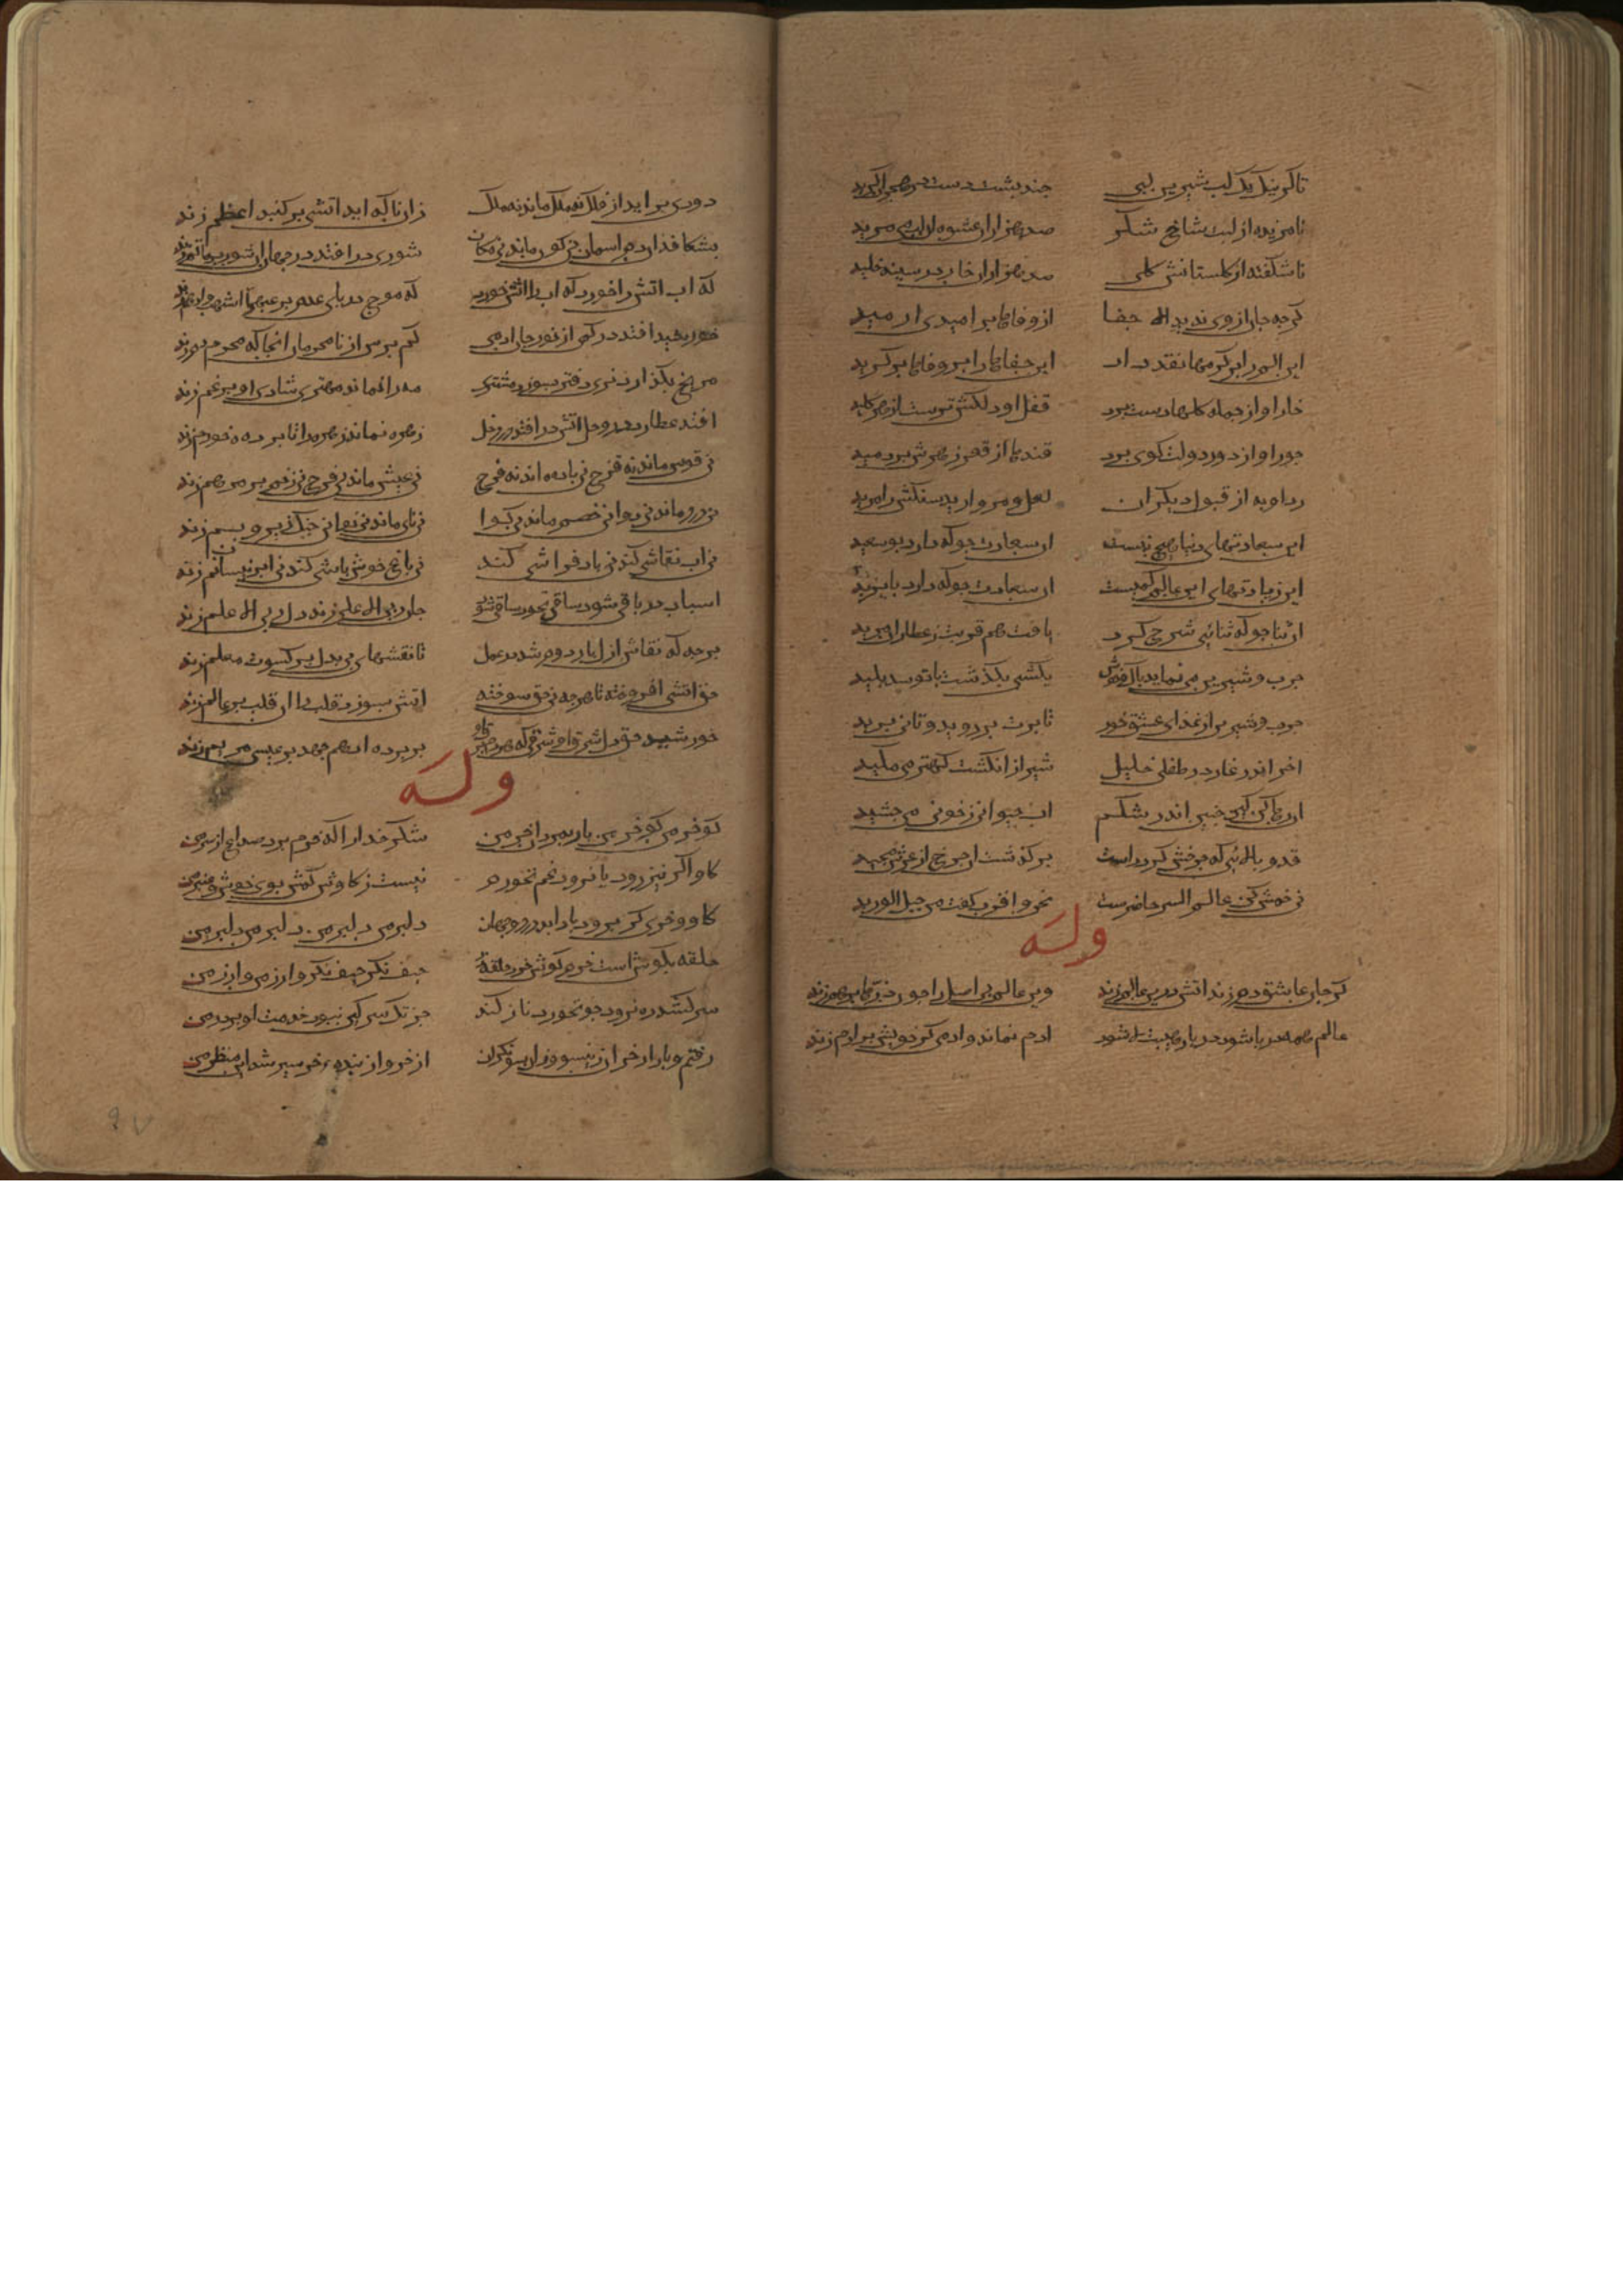 تا کزیند یک لب شیرین لبی چند پشت دست در هجران کزید
نامزیده از لبت شاخ شکر صد هزاران عشوه
ناشکفته از کلستانش کلی صد هزاران خار در سینه خلید
کرجه جان از وی ندید الا جفا از وفاها بر امیدی ارمید
این الم را بر کرمها نقد داد این جفاها را بر وفاها بر کزید
خار او از جمله کلها دست برد قفل او دلکش ترست از هر کلید
جور او از دور دولت کوی برد قندها از قهر زهرش بردمید
رد او به از قبول دیکران لعل و مروارید سنکش را مرید
این سعادتهای دنیا هیچ نیست ان سعادت جو که دارد بوسعید
این زیادتهای این عالم کمیست ان سعادت جو که دارد بایزید
ان ثنا جو که ثنائی شرح کرد یافت هم قربت ز عطار ان فرید
چرب و شیرین می نماید پاک و خوش یکشبی بکذشت با تو شد پلید
چرب و شیرین از غذای عشق خور تا پرت بر روید و تانی پرید
اخر اندر غار در طفلی خلیل شیر از انکشت کهتر می مکید
ان رها کن ان جنین اندر شکم اب حیوانی ز خونی می چشید
قد و بالائی که چرخش کرد راست بر کذشت از چرخ از عرش مجید
نی خمش کن عالم السر حاضرست نحن و اقرب کفت من حبل الورید
وله
کر جان عاشق دم زند اتش درین عالم زند وین عالم بی اصل را چون ذرها برهم زند
عالم همه دریا شود دریا ز هیبت لا شود ادم نماند و ادمی کر خویش بر ادم زند
دودی بر اید از فلک نه فلک ماند نه ملک زان ناکه اید اتشی بر کنبد اعظم زند
بشکافد ان دم اسمان نی کون ماند نی مکان شوری در افتد در جهان ان شور بر ماتم زند
که اب اتش را خورد که اب را اتش خورد که موج دریای عدم بر اشهب و ادهم زند
خورشید افتد در کمی از نور جان ادمی کم پرس از نامحرمان انجا که محرم دم زند
مریخ بکذارد نری دفتر بسوزد مشتری مه را نماند مهتری شادی او بر غم زند
افتد عطارد در وحل اتش در افتد در زحل زهره نماند زهره را تا پرده خرم زند
نی قوس ماند نه قزح نی باده ماند نه قدح نی عیش ماند نی فرح نی زخم بر مرهم زند
نی درد ماند نی دوا نی خصم ماند نی کوا نی نای ماند نی نوا نی جنک زیر و بم زند
نی اب نقاشی کند نی باد فراشی کند نی باغ خوش باشی کند نی ابر نیسان نم زند
اسباب در باقی شود ساقی بخود ساقی شود جان ربی الاعلی زند دل ربی الاعلم زند
برجه که نقاش ازل بار دوم شد در عمل تا نقشهای بی بدل بر کسوت معلم زند
حق اتشی افروخته تا هر چه نی حق سوخته اتش بسوزد قلب را ان قلب بر عالم زند
خورشید حق دل شرق او شرقی که هر دم برق او بر پرده ادهم جهد بر عیسی مریم زند
وله
کو خر من کو خر من پار بمرد ان خر من شکر خدا را که خرم برد صداع از سر من
کاو اکر نیز رود یا نرود غم نخورم نیست ز کاوش لبش بوی خوش عنبر من
کاو و خری کر برود باد ابد در دو جهان دلبر من دلبر من دلبر من دلبر من
حلقه بکوش است خرم کوش خر و حلقه زر حیف نکر حیف نکر وا زر من وا زر من
سر کشد و ره نرود جو نخورد ناز کند جز تک سرکین نبود خدمت او بر در من
رفتم بازار خران این سو و ان سو نکران از خر و از بنده خر سیر شد این منظر من